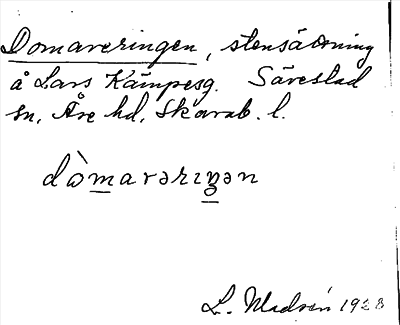 Domareringen, stensättning
å Lars Kämpesg. Särestad
sn, Åse hd, Skarab. l.
dò̱marərıŋən
L. Madsén 1928